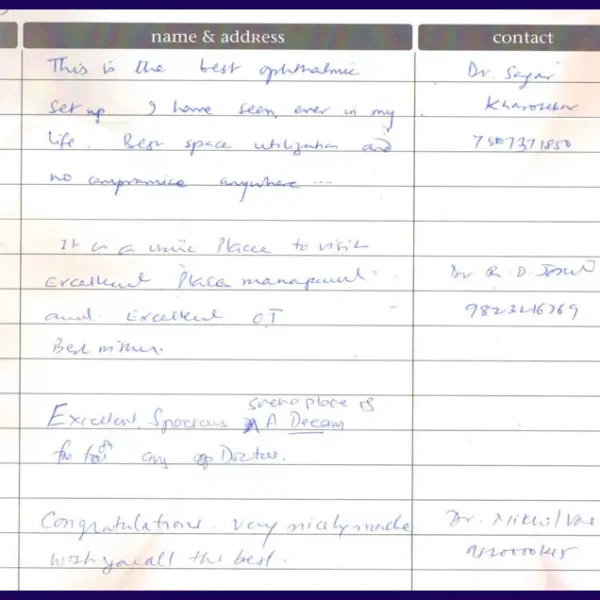 name & address
contact
This is the best ophthalmic
Dr. Sagar
set up I have seen ever in my
life. Best space utilization and
7507371850
no compromise anywhere ...
It is a Place to visit
Excellent Place management
Dr R. D.
and Excellent OT
9823216769
Best
such place is
Excellent, Spacious A Dream
for any of Doctor.
Congratulations. Very nicely made
Dr. Nikhil
wish you all the best.